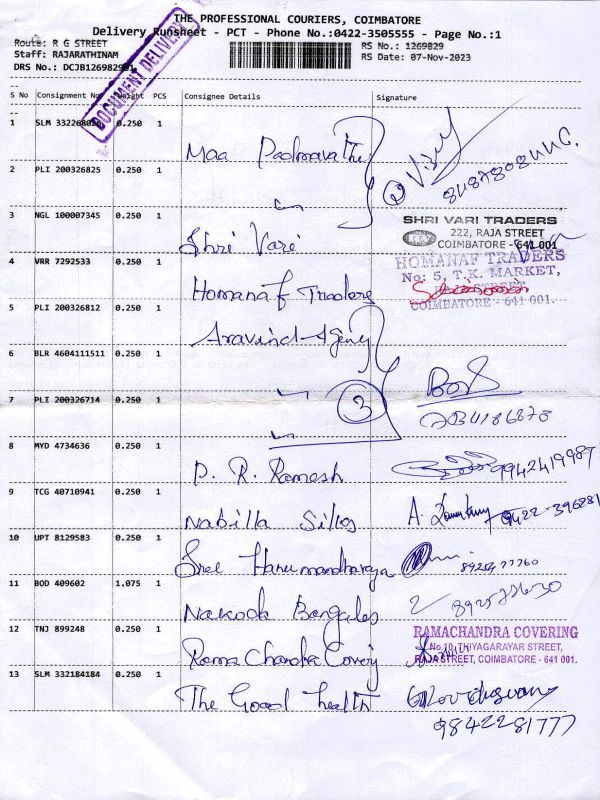 THE PROFESSIONAL COURIERS, COIMBATORE
Delivery Runsheet - PCT - Phone No.:0422-3505555 - Page No.:1
Route: R G STREET
Staff: RAJARATHINAM
DRS No.: DCJB126982901
RS No.: 1269829
RS Date: 07-Nov-2023
DOCUMENT DELIVERY
S No Consignment No Weight PCS Consignee Details Signature
1 SLM 0.250 1 Maa
2 PLI 200326825 0.250 1
3 NGL 100007345 0.250 1 Shri Vari
SHRI VARI TRADERS
222, RAJA STREET
COIMBATORE - 641 001
4 VRR 7292533 0.250 1 Homanaf Traders
HOMANAF TRADERS
No: 5, T.K. MARKET,
COIMBATORE - 641 001.
5 PLI 200326812 0.250 1 Aravind Agency
6 BLR 4604111511 0.250 1
7 PLI 200326714 0.250 1
3
8 MYD 4734636 0.250 1 P. R. Ramesh
9942419987
9 TCG 40710941 0.250 1 Nabilla Silks
10 UPT 8129583 0.250 1 Sree
11 BOD 409602 1.075 1 Nakoda Bangles
12 TNJ 899248 0.250 1 Rama Chandra Covering
RAMACHANDRA COVERING
No.10, THIYAGARAYAR STREET,
RAJA STREET, COIMBATORE - 641 001.
13 SLM 332184184 0.250 1 The Good health
9842281777